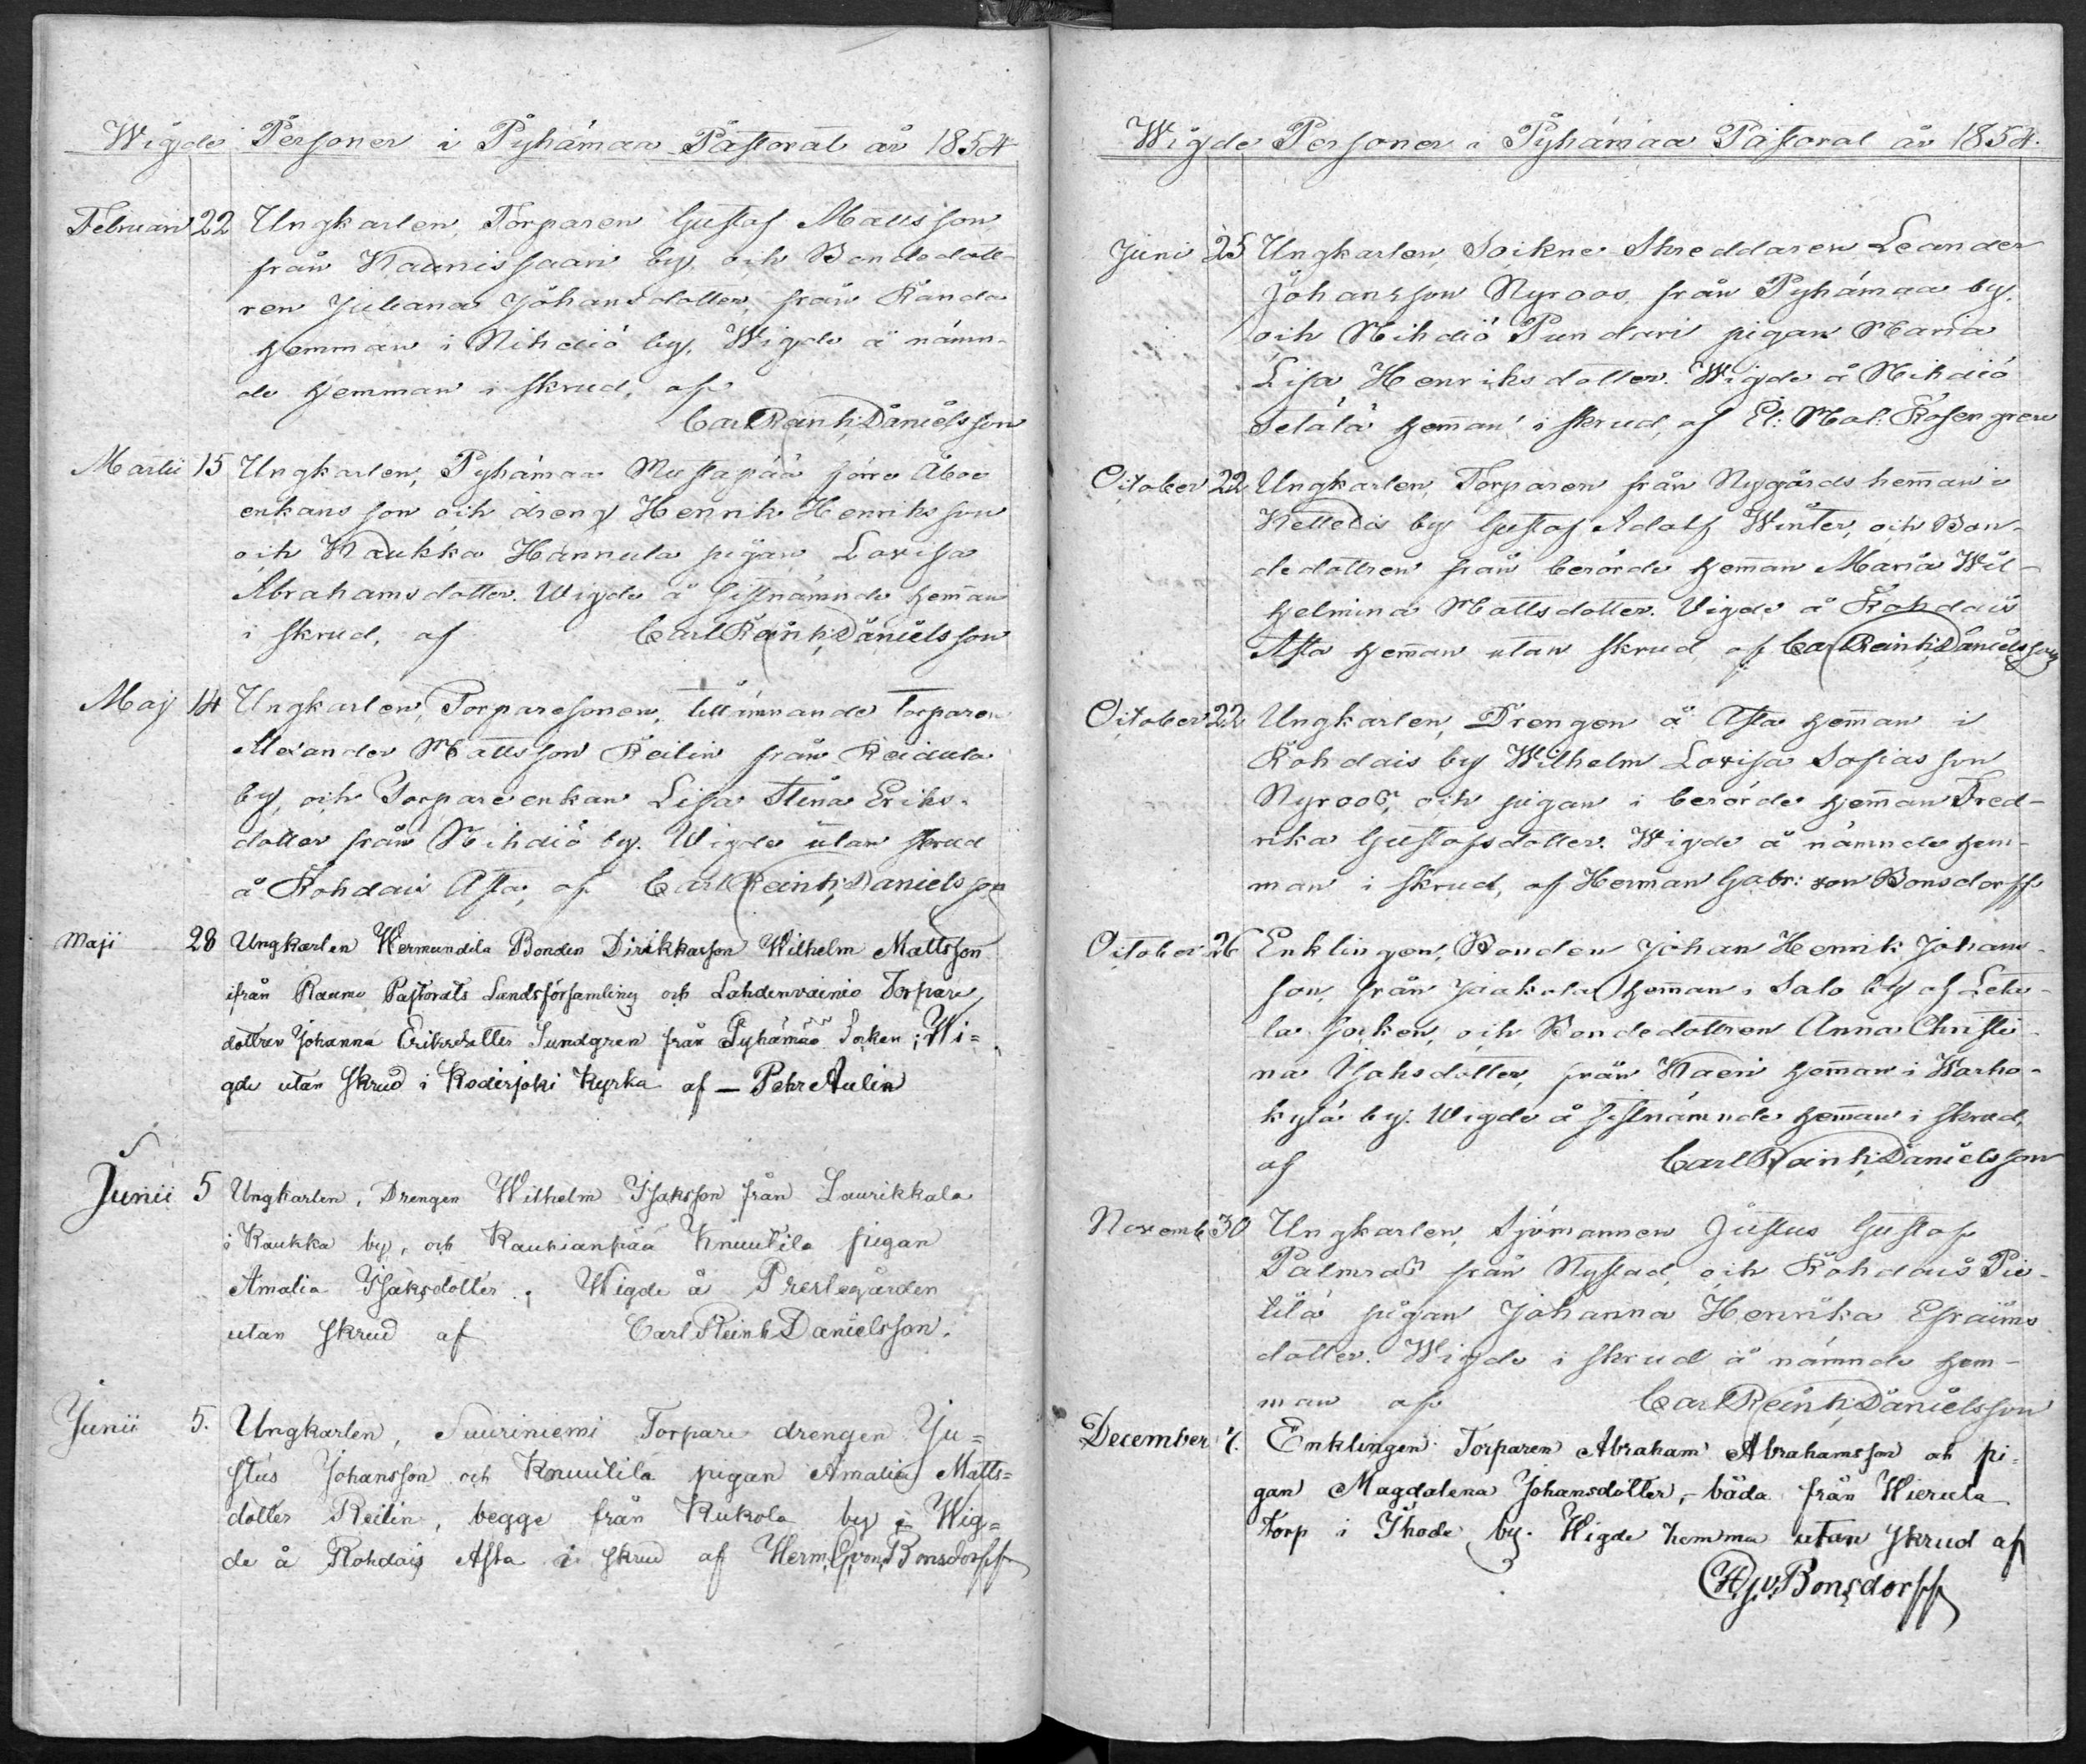 Wigde Personer i Pyhämaa Pastorat år 1854
Februari 22 Ungkarlen, Torparen Gustaf Mattsson
från Kaunissaari by, och Bondedott-
ren Juliana Johansdotter, från Randa
hemman i Nihdiö by. Wigde å nämn-
de hemman i skrud, af
Carl Reinh: Danielsson
Martii 15 Ungkarlen, Pyhämaa Mustapää förre Åboe
enkans son och dreng Henrik Henriksson
och Kaukka Hannula pigan Lovisa
Abrahamsdotter. Wigde å sistnämnde hemman
i skrud, af Carl Reinh: Danielsson
Maij 14 Ungkarlen, Torparesonen, tillämnande torparen
Alexander Mattsson Reilin från Reidula
by, och Torpareenkan Lisa Stina Eriks-
dotter från Nihdiö by. Wigde utan skrud
å Rohdais Asta, af Carl Reinh: Danielsson
Maji 28 Ungkarlen Wermundila Bonden Dirikkason Wilhelm Mattsson
ifrån Raumo Pastorats Landsförsamling och Lahdenvainio Torpare
dottren Johanna Eriksdotter Sundgren från Pyhämaa Socken; Wi=
gde utan skrud i Kodisjoki Kyrka af — Pehr Aulin
Junii 5 Ungkarlen, Drengen Wilhelm Isaksson från Laurikkala
i Kaukka by, och Raukianpää Knuutila pigan
Amalia Isaksdotter; Wigde å Prestegården
utan skrud af Carl Reinh Danielsson.
Junii 5. Ungkarlen, Suuriniemi Torpare drengen Ju=
stus Johansson och Knuutila pigan Amalia Matts=
dotter Reilin, begge från Kukola by Wig=
de å Rohdais Asta i skrud af Herm. G. von Bonsdorff
Wigde Personer i Pyhämaa Pastorat år 1854.
Juni 25 Ungkarlen, Sockne Skreddaren Leander
Johansson Nyroos från Pyhämaa by,
och Nihdiö Pundari pigan Maria
Lisa Henriksdotter. Wigde å Nihdiö
Setälä hemman i skrud, af El: Mal: Rosengren
October 22 Ungkarlen, Torparen från Nygårds hemman i
Ketteli by Gustaf Adolf Winter, och Bon-
dedottren från berörde hemman Maria Wil-
helmina Mattsdotter. Vigde å Rohdais
Asta hemman utan skrud af Carl Reinh: Danielsson
October 22 Ungkarlen, Drengen å Asta hemman i
Rohdais by Wilhelm Lovisa Sofias son
Nyroos, och pigan i berörde hemman Fred-
rika Gustafsdotter. Wigde å nämnde hem-
man i skrud, af Herman Gabr: von Bonsdorff
October 26 Enklingen, Bonden Johan Henrik Johans-
son, från Jaakola hemman i Salo by af Leta-
la socken, och Bondedottren Anna Christi-
na Isaksdotter, från Kaeri hemman i Warho-
kylä by. Wigde å sistnämnde hemman i skrud,
af Carl Reinh: Danielsson
Novemb 30 Ungkarlen, Sjömannen Justus Gustaf
Palmros från Nystad, och Rohdais Pie-
tilä pigan Johanna Henrika Efraims
dotter. Wigde i skrud å nämnde hem-
man af Carl Reinh: Danielsson
December 7. Enklingen Torparen Abraham Abrahamsson och pi-
gan Magdalena Johansdotter,- båda från Wierula
Torp i Ihode by. Wigde hemma utan skrud af
H. G. v. Bonsdorff